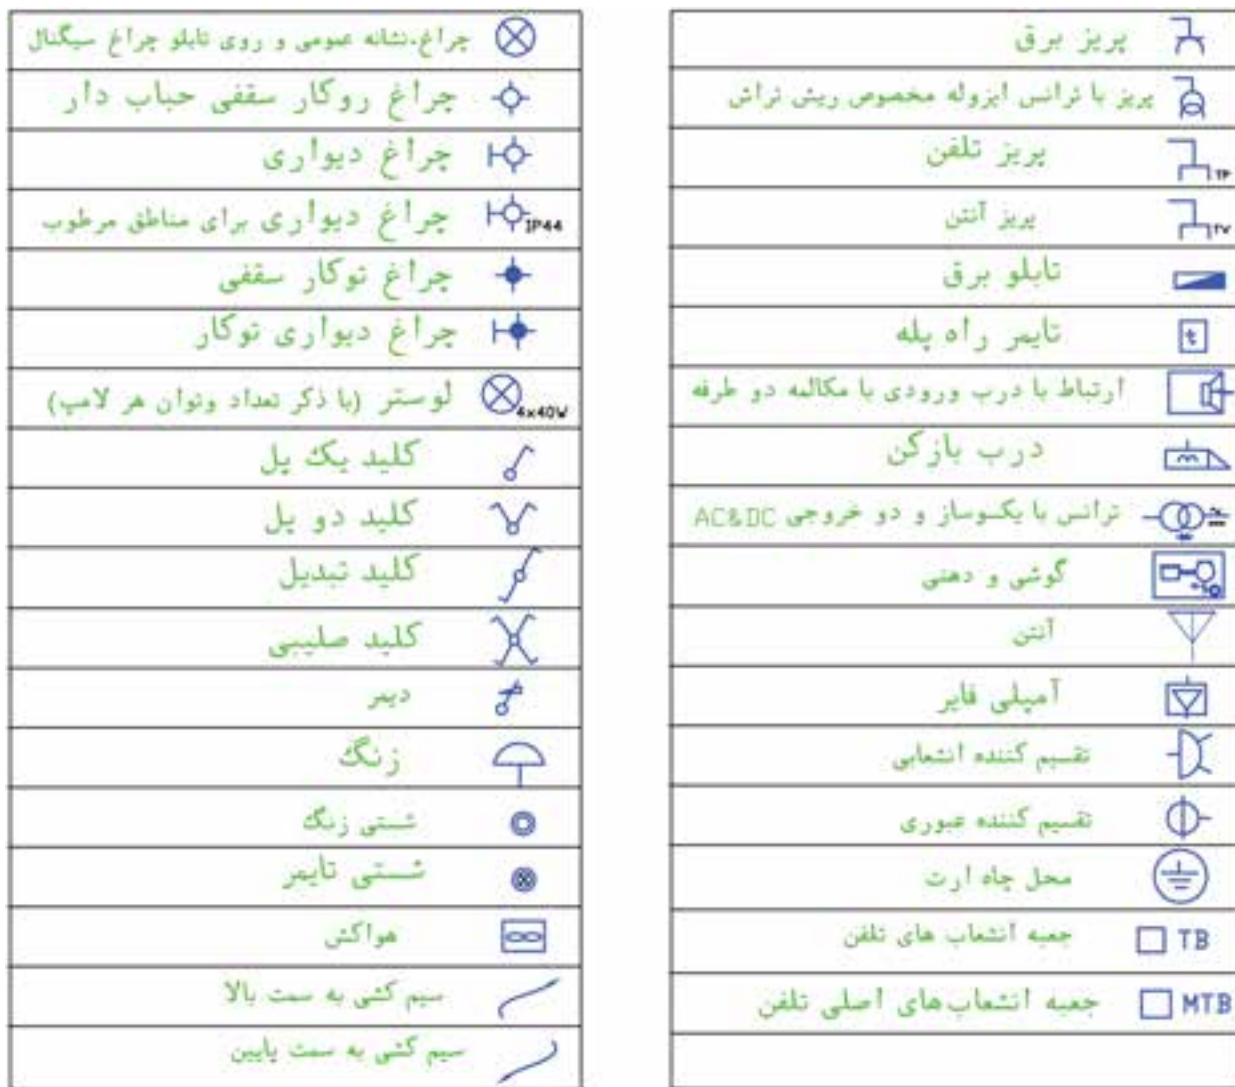 پریز برق
پریز با ترانس ایزوله مخصوص ریش تراش
پریز تلفن TP
پریز آنتن TV
تابلو برق
تایمر راه پله t
ارتباط با درب ورودی با مکالمه دو طرفه
درب بازکن
ترانس با یکسوساز و دو خروجی AC&DC
گوشی و دهنی
آنتن
آمپلی فایر
تقسیم کننده انشعابی
تقسیم کننده عبوری
محل چاه ارت
جعبه انشعاب های تلفن TB
جعبه انشعاب‌های اصلی تلفن MTB
چراغ،نشانه عمومی و روی تابلو چراغ سیگنال
چراغ روکار سقفی حباب دار
چراغ دیواری
چراغ دیواری برای مناطق مرطوب IP44
چراغ توکار سقفی
چراغ دیواری توکار
لوستر (با ذکر تعداد وتوان هر لامپ) 4x40W
کلید یک پل
کلید دو پل
کلید تبدیل
کلید صلیبی
دیمر
زنگ
شستی زنگ
شستی تایمر
هواکش
سیم کشی به سمت بالا
سیم کشی به سمت پایین